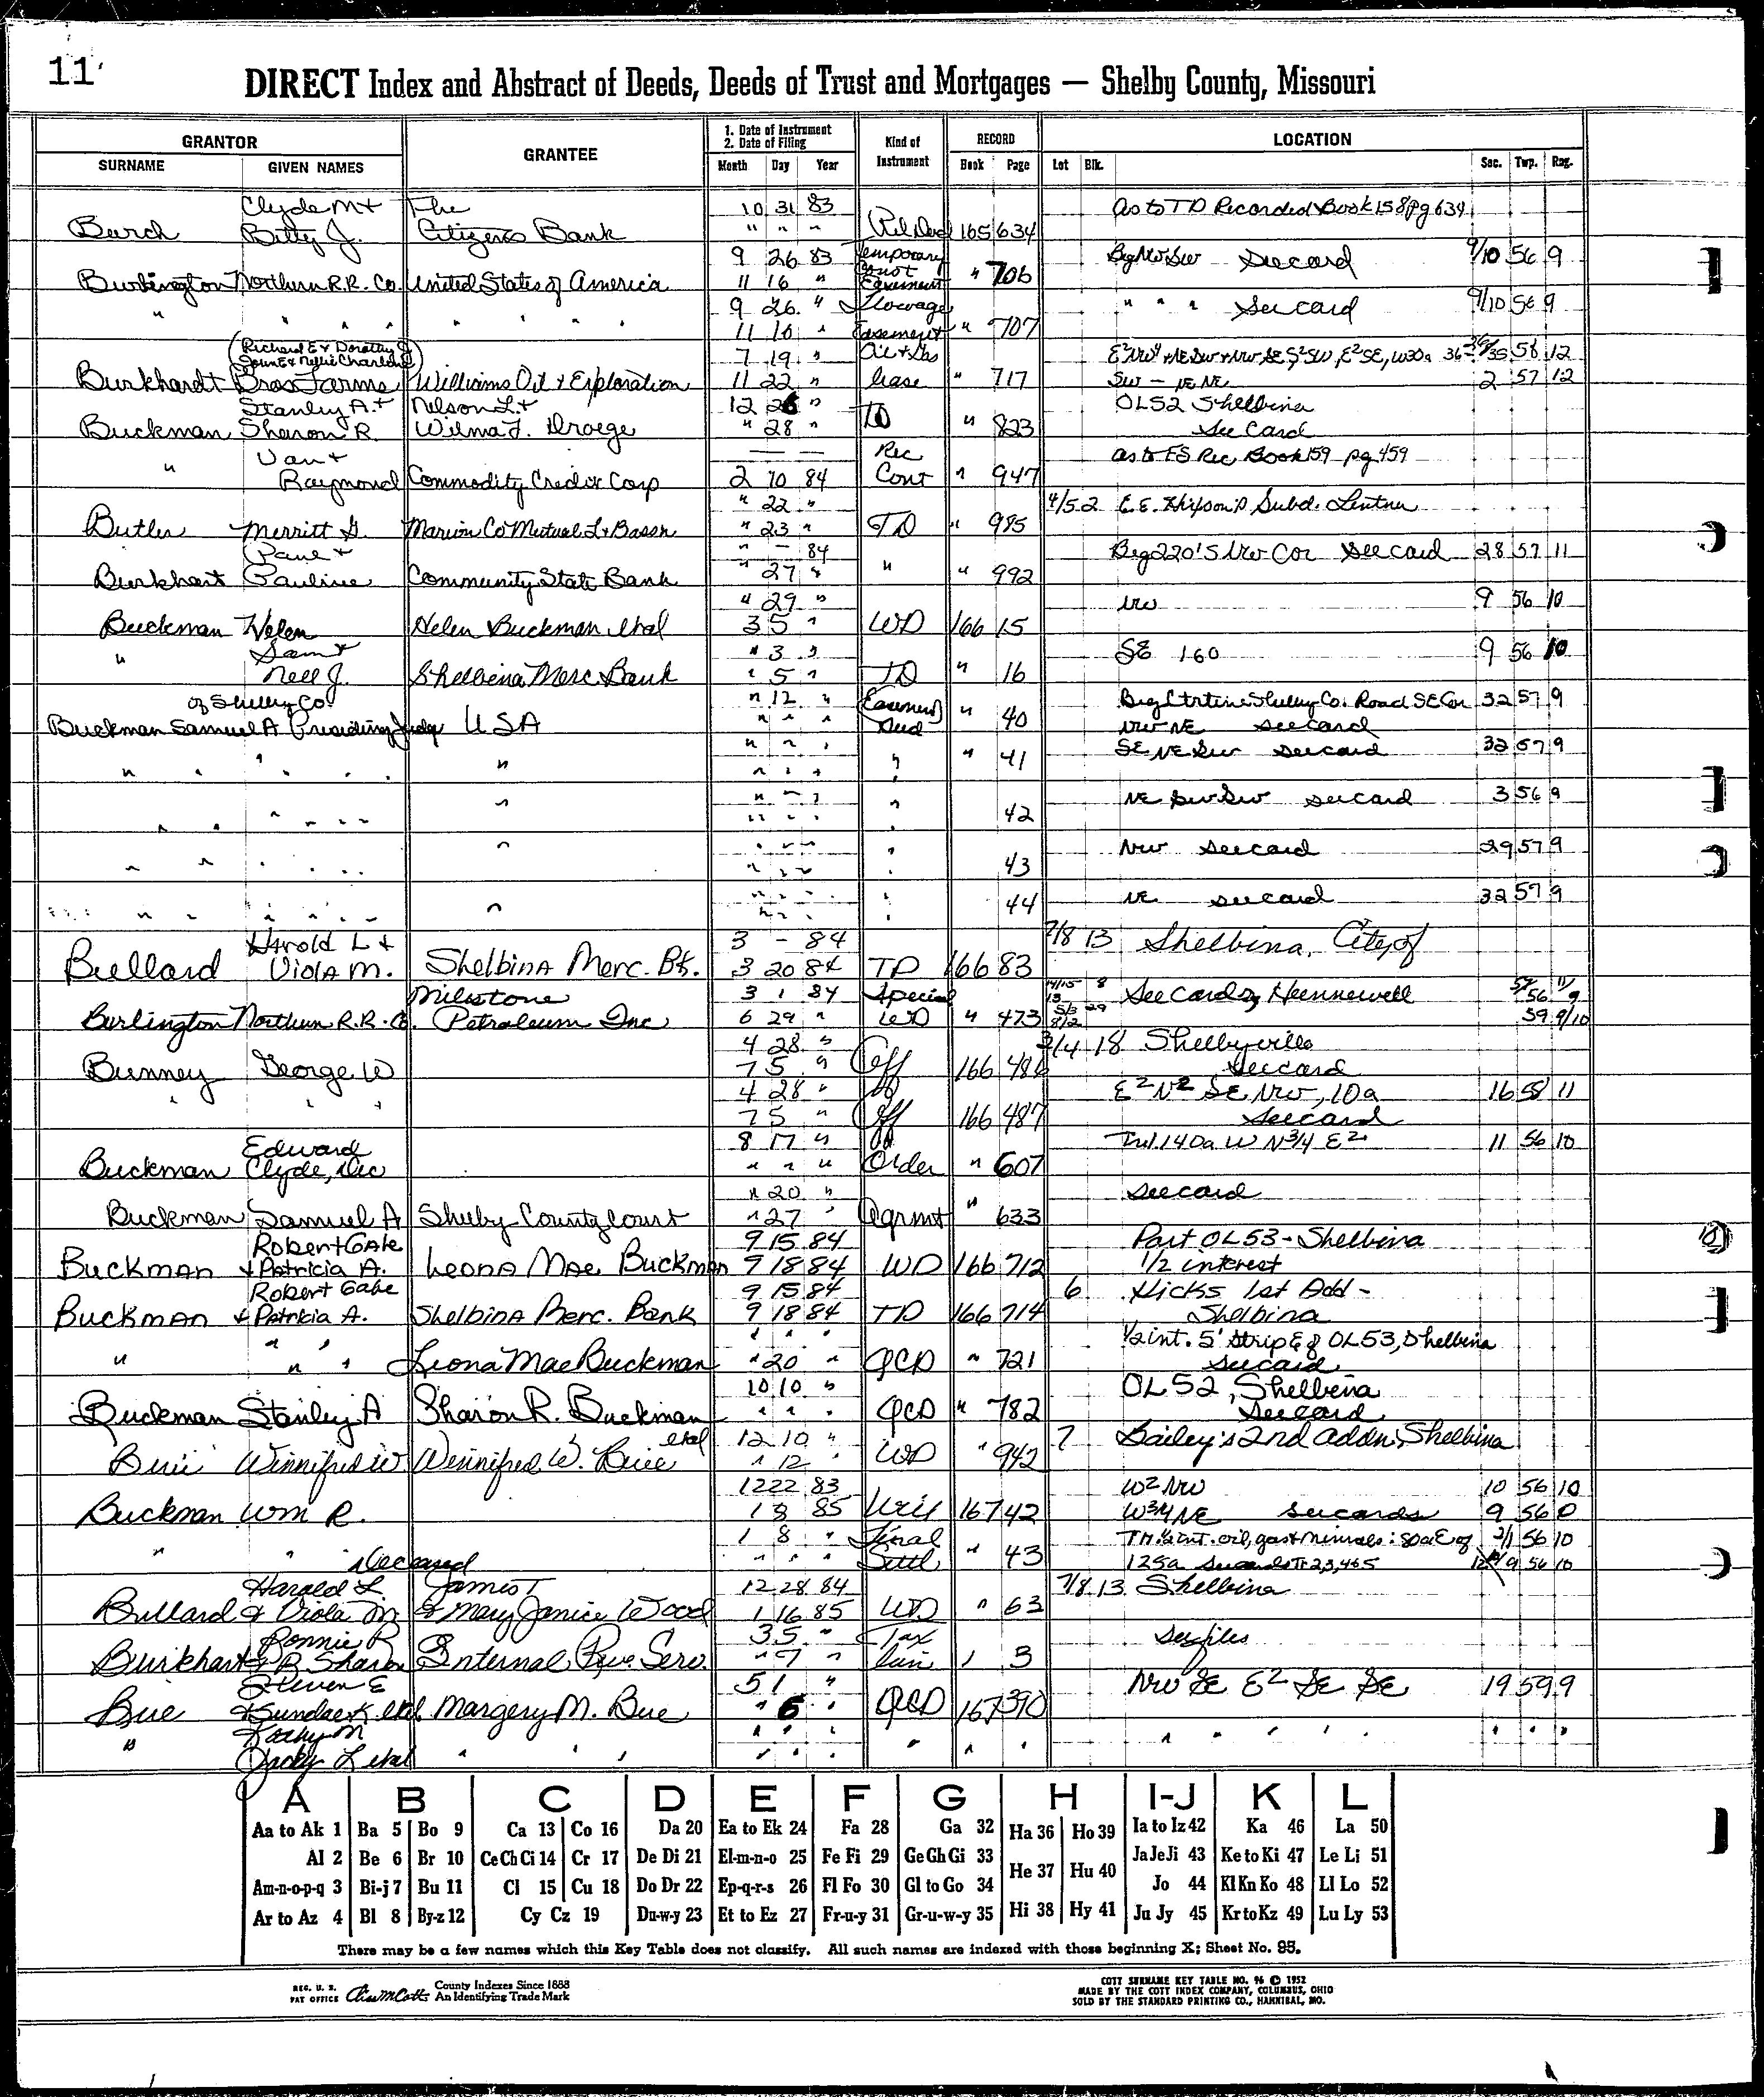 11
DIRECT Index and Abstract of Deeds, Deeds of Trust and Mortgages — Shelby County, Missouri
GRANTOR GRANTEE 1. Date of Instrument 2. Date of Filing Kind of Instrument RECORD LOCATION
SURNAME GIVEN NAMES Month Day Year Book Page Lot Blk. Sec. Twp. Rng.
Clyde M + The 10 31 83 as to TD Recorded Book 158 pg 634
Burch Betty J. Citizens Bank " " " Rel Deed 165 634
9 26 83 Temporary Beg NW SW See card 9/10 56 9
Burlington Northern R.R. Co. United States of America 11 16 " Const Easement " 706
9 26 " Flowage " " " See card 9/10 56 9
" " " " " " " " 11 16 " Easement " 707
(Richard E + Dorothy J
John E + Nellie Charlene) 7 19 " Oil + Gas 58 12
Burkhardt Bros Farms Williams Oil + Exploration 11 22 " Lease " 717 SW - NE NE 2 57 12
Stanley A. + Nelson L. + 12 26 " OL52 Shelbina
Buckman Sharon R. Wilma F. Droege " 28 " TD " 823 See Card
Van + — — — Rec as to FS Rec Book 159 pg 459
" Raymond Commodity Credit Corp 2 10 84 Cont " 947
" 22 " 4/5 2 E.E. Hixson's Subd. Lentner
Butler Merritt G. Marion Co Mutual L + B assn " 23 " TD " 985
" - 84 Beg 220' S NW Cor See card 28 57 11
Burkhart Pauline Community State Bank " 27 " " " 992
" 29 " NW 9 56 10
Buckman Helen Helen Buckman etal 3 5 " WD 166 15
Sam + " 3 " SE 160 9 56 10
" Nell J. Shelbina Merc Bank " 5 " TD " 16
of Shelby Co. " 12 " Easement Beg Ctr line Shelby Co. Road SE Cor 32 57 9
Buckman Samuel A Presiding Judge USA " " " Deed " 40 NW NE See card
" " " SE NE SW See card 32 57 9
" " " " " " " " " " " " 41
" " " NE SW SW See card 3 56 9
" " " " " " " " " " " 42
" " " NW See card 29 57 9
" " " " " " " " " " 43
" " " NE See card 32 57 9
" " " " " " " " " " 44
Harold L + 3 - 84 7/8 13 Shelbina, City of
Bullard Viola M. Shelbina Merc. Bk. 3 20 84 TD 166 83
Milestone 3 1 84 Special 14/15 8 See Cards Hunnewell
Burlington Northern R.R. Co. Petroleum Inc 6 29 " WD " 473 59 9/10
4 28 " 3/4 18 Shelbyville
Bunney George W 7 5 " Aff 166 486 See card
4 28 " E2 N2 SE NW, 10a 16 58 11
" " " 7 5 " Aff 166 487 See card
Edward 8 17 " 11 56 10
Buckman Clyde, Dec " " " Order " 607
" 20 " See card
Buckman Samuel A Shelby County Court " 27 " Agrmt " 633
Robert Gale 9 15 84 Part OL53 - Shelbina
Buckman + Patricia A. Leona Mae Buckman 9 18 84 WD 166 712 1/2 interest
Robert Gabe 9 15 84 6 Hicks 1st Add -
Buckman + Patricia A. Shelbina Merc. Bank 9 18 84 TD 166 714 Shelbina
" " " 1/2 int. 5' Strip E of OL53, Shelbina
" " " Leona Mae Buckman " 20 " QCD " 721 See card
10 10 " OL52, Shelbina
Buckman Stanley A Sharon R. Buckman " " " QCD " 782 See card
etal 12 10 " 7 Bailey's 2nd Addn, Shelbina
Winnifred W. Winnifred W. " 12 " WD " 942
12 22 83 W2 NW 10 56 10
Buckman Wm R. 1 8 85 Will 167 42 W3/4 NE See cards 9 56
1 8 " Final int. oil, gas + minerals: 80a E of 56 10
" " deceased " " " Settl " 43 125a 9 56 10
Harold L. James T 12 28 84 7/8 13 Shelbina
Bullard & Viola M & Mary Janice Wood 1 16 85 WD " 63
Ronnie R 3 5 " Tax See files
Burkhart & R Sharon Internal Rev. Serv. " 7 " Lien 1 3
Steven E 5 1 " NW SE E2 SE SE 19 59 9
Bue etal Margery M. Bue " 6 " QCD 167 390
Kathy M " " " " " " " " " " "
" Jacky L etal " " " " " " " " "
A B C D E F G H I-J K L
Aa to Ak 1 Ba 5 Bo 9 Ca 13 Co 16 Da 20 Ea to Ek 24 Fa 28 Ga 32 Ha 36 Ho 39 Ia to Iz 42 Ka 46 La 50
Al 2 Be 6 Br 10 Ce Ch Ci 14 Cr 17 De Di 21 El-m-n-o 25 Fe Fi 29 Ge Gh Gi 33 He 37 Hu 40 Ja Je Ji 43 Ke to Ki 47 Le Li 51
Am-n-o-p-q 3 Bi-j 7 Bu 11 Cl 15 Cu 18 Do Dr 22 Ep-q-r-s 26 Fl Fo 30 Gl to Go 34 Jo 44 Kl Kn Ko 48 Ll Lo 52
Ar to Az 4 Bl 8 By-z 12 Cy Cz 19 Du-w-y 23 Et to Ez 27 Fr-u-y 31 Gr-u-w-y 35 Hi 38 Hy 41 Ju Jy 45 Kr to Kz 49 Lu Ly 53
There may be a few names which this Key Table does not classify. All such names are indexed with those beginning X; Sheet No. 95.
REG. U. S. PAT OFFICE County Indexes Since 1888 An Identifying Trade Mark
COTT SURNAME KEY TABLE NO. 96 © 1952
MADE BY THE COTT INDEX COMPANY, COLUMBUS, OHIO
SOLD BY THE STANDARD PRINTING CO., HANNIBAL, MO.